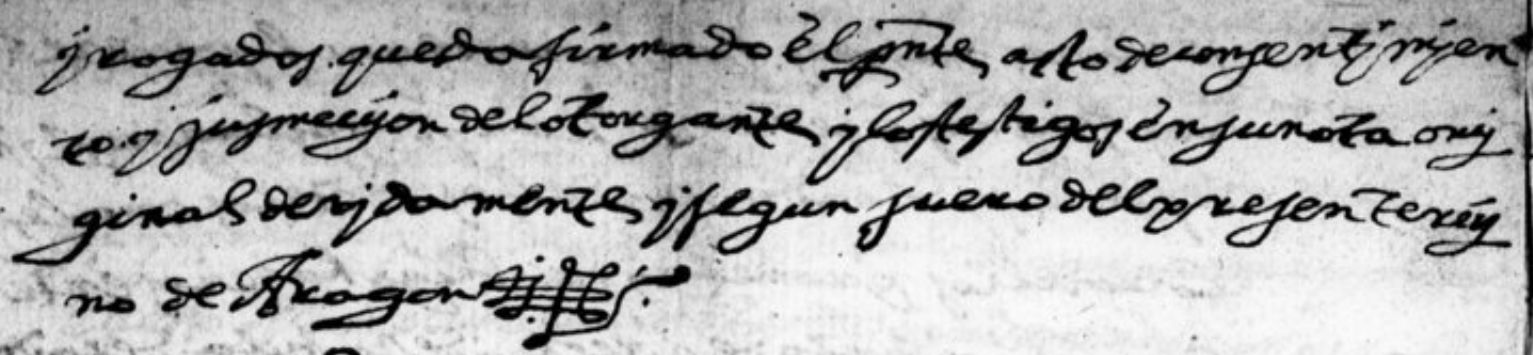 y rogados. queda firmado el pnte acto de consentimien
to. y sumecion del otorgante y los testigos en su nota ori
ginal devidamente y segun fuero del presente rey
no de Aragon